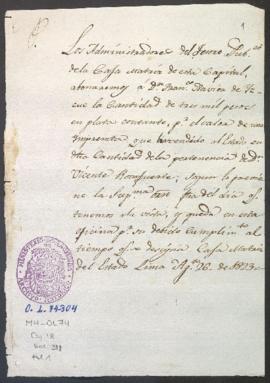 1
Los Administradores del Tesoro Pub.co
de la Casa Matriz de esta Capital,
abonaremos a Dn. Fran.co Xavier de
cue la Cantidad de tres mil pesos
en plata corriente, p.r el valor de una
Imprenta que ha vendido al Estado en
dha Cantidad de la pertenencia de Dn.
Vicente Rocafuerte; segun lo previe
ne la Sup.ma orn fha del dia q.e
tenemos a la vista, y queda en esta
oficina p.a su debido cumplim.to al
tiempo q.e se designe Casa Matriz
del Estado Lima Ag.to 26. de 1823
O.L. 74-304
MH-OL74
Caj. 18
Doc. 298
fol. 1